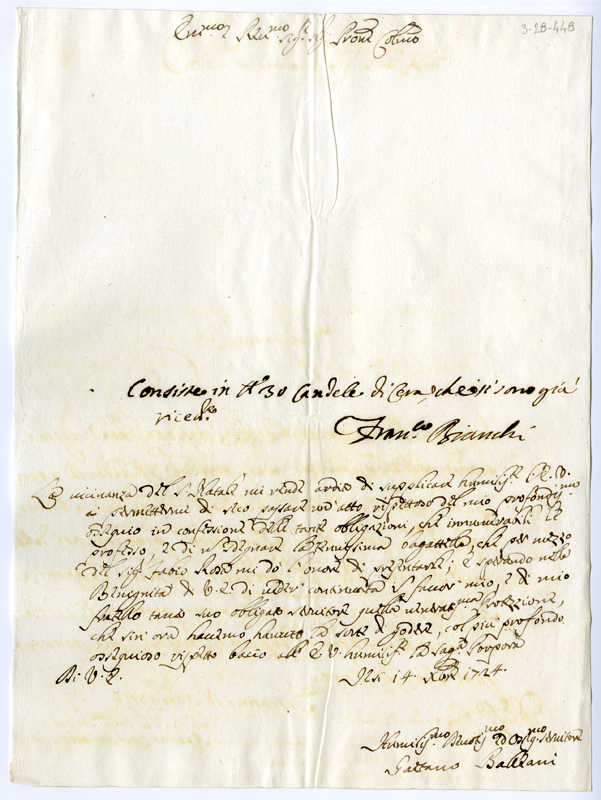 3-28-448
Em.mo e Rev.mo Sig.r Sig.r Pron Col.mo
Consiste in n.o 30 Candele di Cera, che si sono già
ricev.te
Fran.co Bianchi
La vicinanza del S. Natale mi rende ardito di supplicar humilis.e l'E. V.
a permettermi di seco passare un'atto rispettoso del mio profondis.mo
ossequio in confessione delle tante obligazioni, che innumerabili le
professo, e di n degnare la tenuissima bagattella, che per mezzo
del Sig.r Fabio Rosa mi do l'onore di presentare; e sperando nella
Benignità di V. E. di veder continuata in favor mio, e di mio
fratello tanto suo obligato servitore quella veneratma Protezione,
che sin ora havemo havuto la sorte di godere, col più profondo
ossequioso rispetto bacio alla E. V. humilis.e la Sag.a Porpora
Di V. E. 14. Xbre 1724.
Humilis.mo Devotis.mo ed Osseq.mo Servitore
Gaetano Balzani